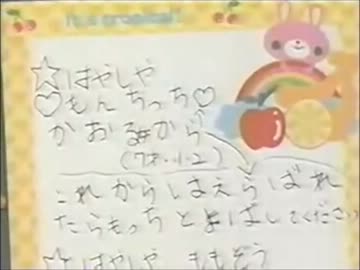 It's a tropical!!
☆はやしや
♡もんちっち♡
かおる#から
(7才.1.2)
これからはえらばれ
たらもっちとよばしてください
☆はやしや ももぞう